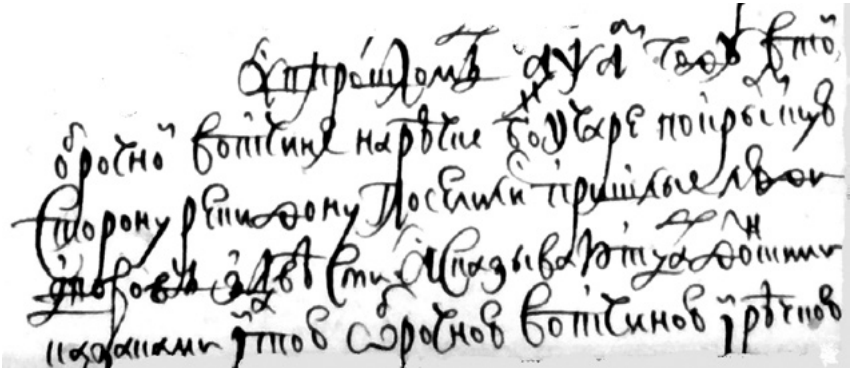 А в прошломъ ҂аѱа м году в той
оброчной вотчине на рѣчке боучаре по крымскую
сторону реки дону поселили пришлые люди
дворовъ з двѣсти А называютца донскими
казаками и тою оброчною вотчиною и рѣчкою